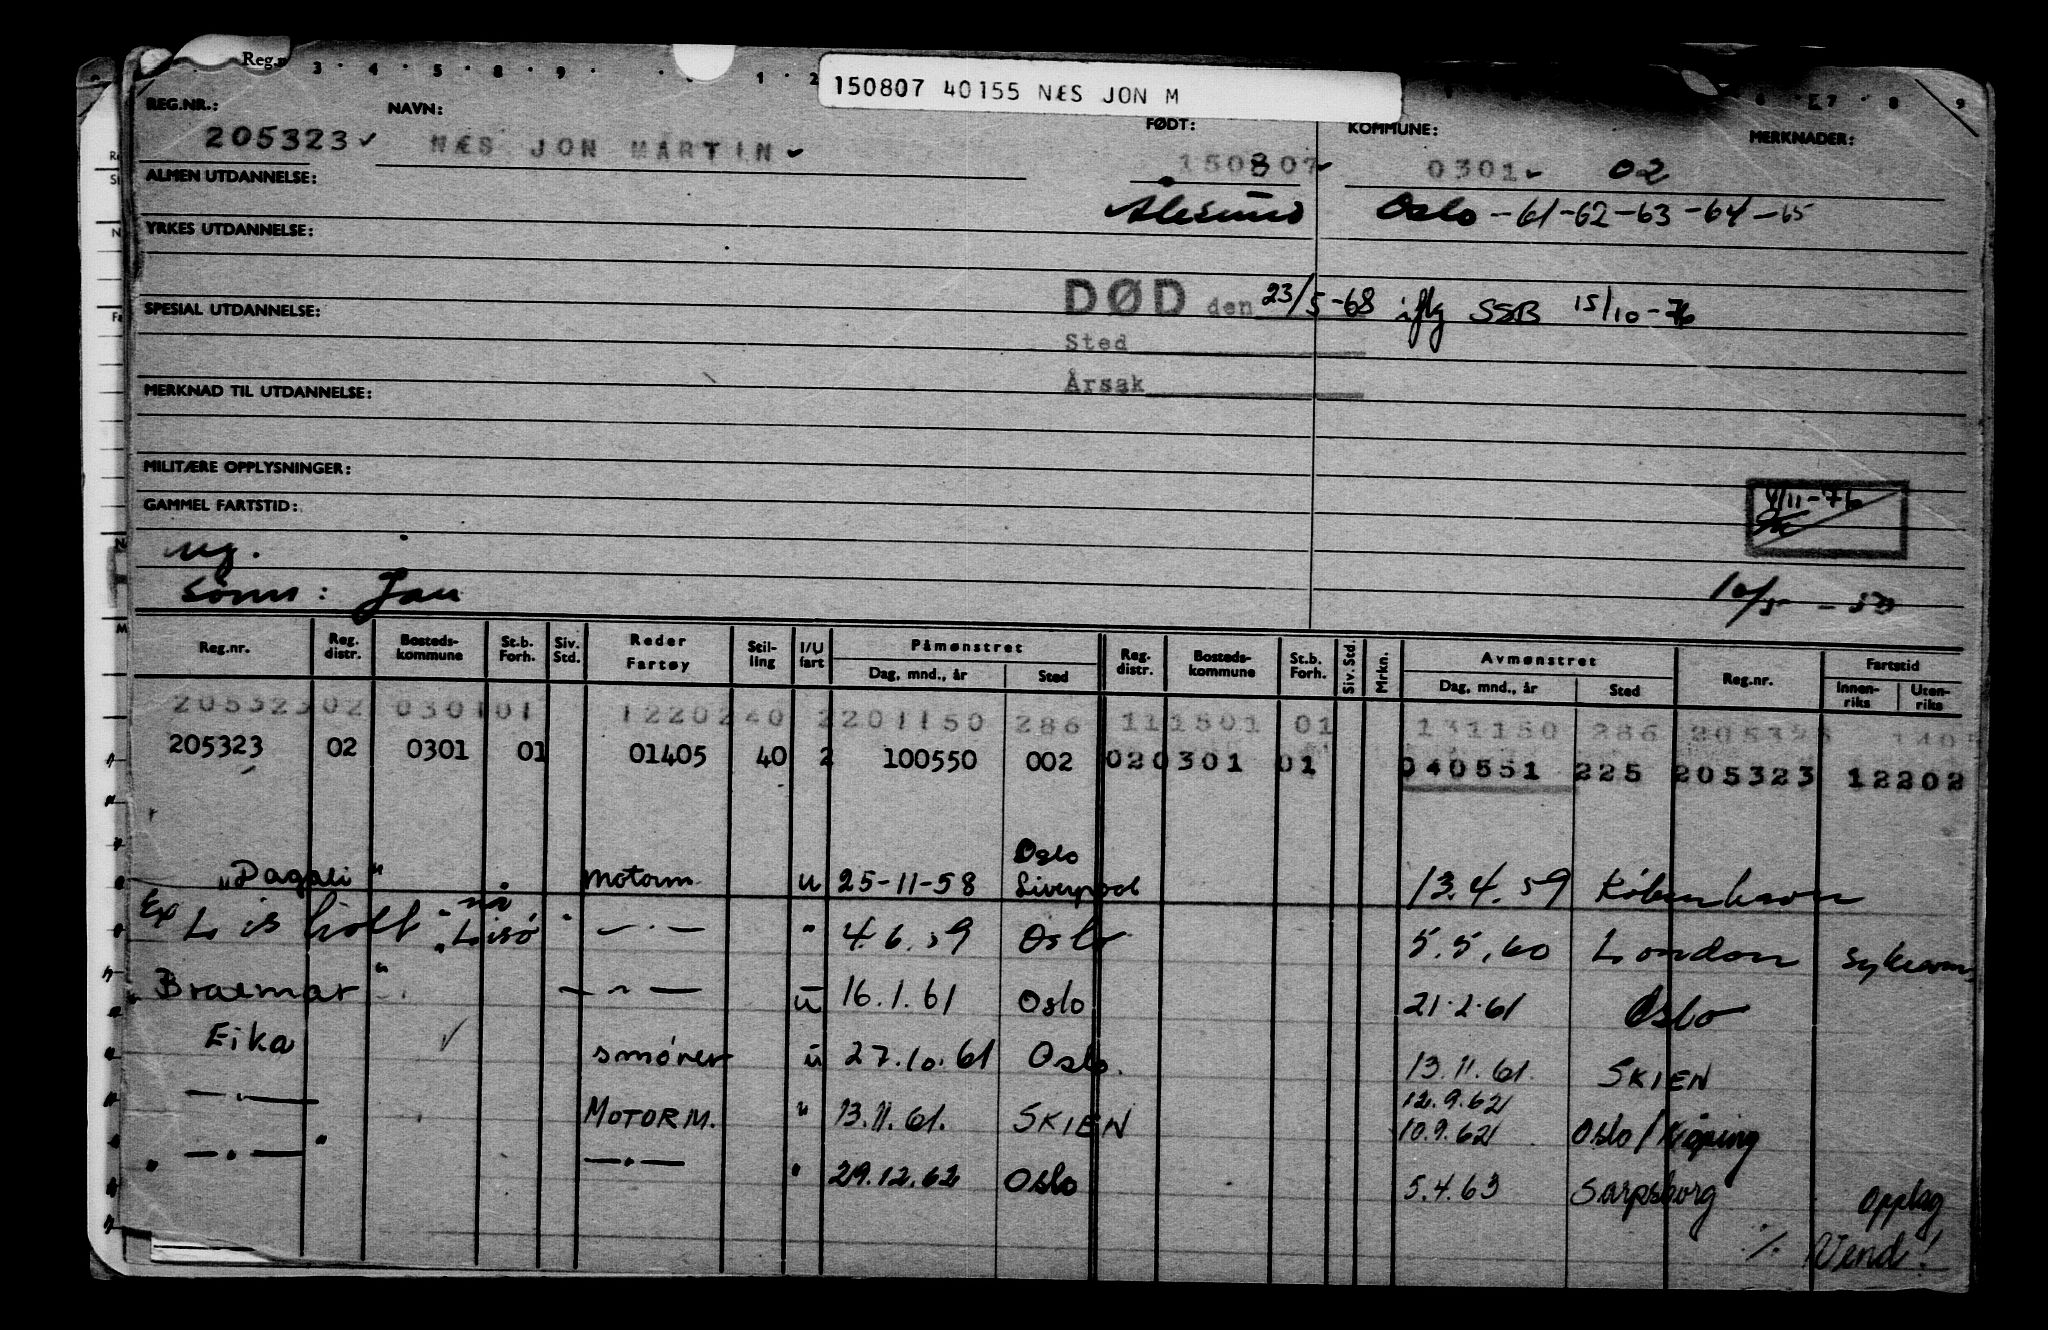 Reg.n 3 · 4 · 5 · 8 · 9 · 1 · 2 6 7 · 8 · 9
150807 40155 NÆS JON M
REG.NR.: NAVN: FØDT: KOMMUNE: MERKNADER:
205323 ✓ NÆS JON MARTIN ✓ 150807 ✓ 0301 ✓ 02
ALMEN UTDANNELSE: Ålesund Oslo - 61-62-63-64-65
YRKES UTDANNELSE:
DØD den 23/5-68 iflg SSB 15/10-76
SPESIAL UTDANNELSE:
Sted
Årsak
MERKNAD TIL UTDANNELSE:
MILITÆRE OPPLYSNINGER:
4/11-76
GAMMEL FARTSTID:
ug.
Sønn: Jan 10/5-50
Reg.nr. Reg. distr. Bosteds-kommune St.b. Forh. Siv. Std. Reder Fartøy Stil-ling I/U fart Påmønstret Dag, mnd., år Sted Reg. distr. Bosteds-kommune St.b. Forh. Siv. Std. Mrkn. Avmønstret Dag, mnd., år Sted Reg.nr. Fartstid Innen-riks Uten-riks
205323 02 0301 01 12202 40 2 201150 286 111501 01 131150 286 205323
205323 02 0301 01 01405 40 2 100550 002 020301 01 040551 225 205323 12202
Oslo
"Dagali" Motorm u 25-11-58 Liverpool 13.4.59 København
Ex Lisholt" nå "Lisø" — · — " 4.6.59 Oslo 5.5.60 London
"Braemar" — · — u 16.1.61 Oslo 21.2.61 Oslo
Eika ✓ smører u 27.10.61 Oslo. 13.11.61. SKIEN
12.9.62
— · — MOTORM. " 13.11.61. SKIEN 10.9.62 Oslo / Köping
" — · — " — · — " 29.12.62 Oslo 5.4.63 Sarpsborg Opplag
·/. Vend!